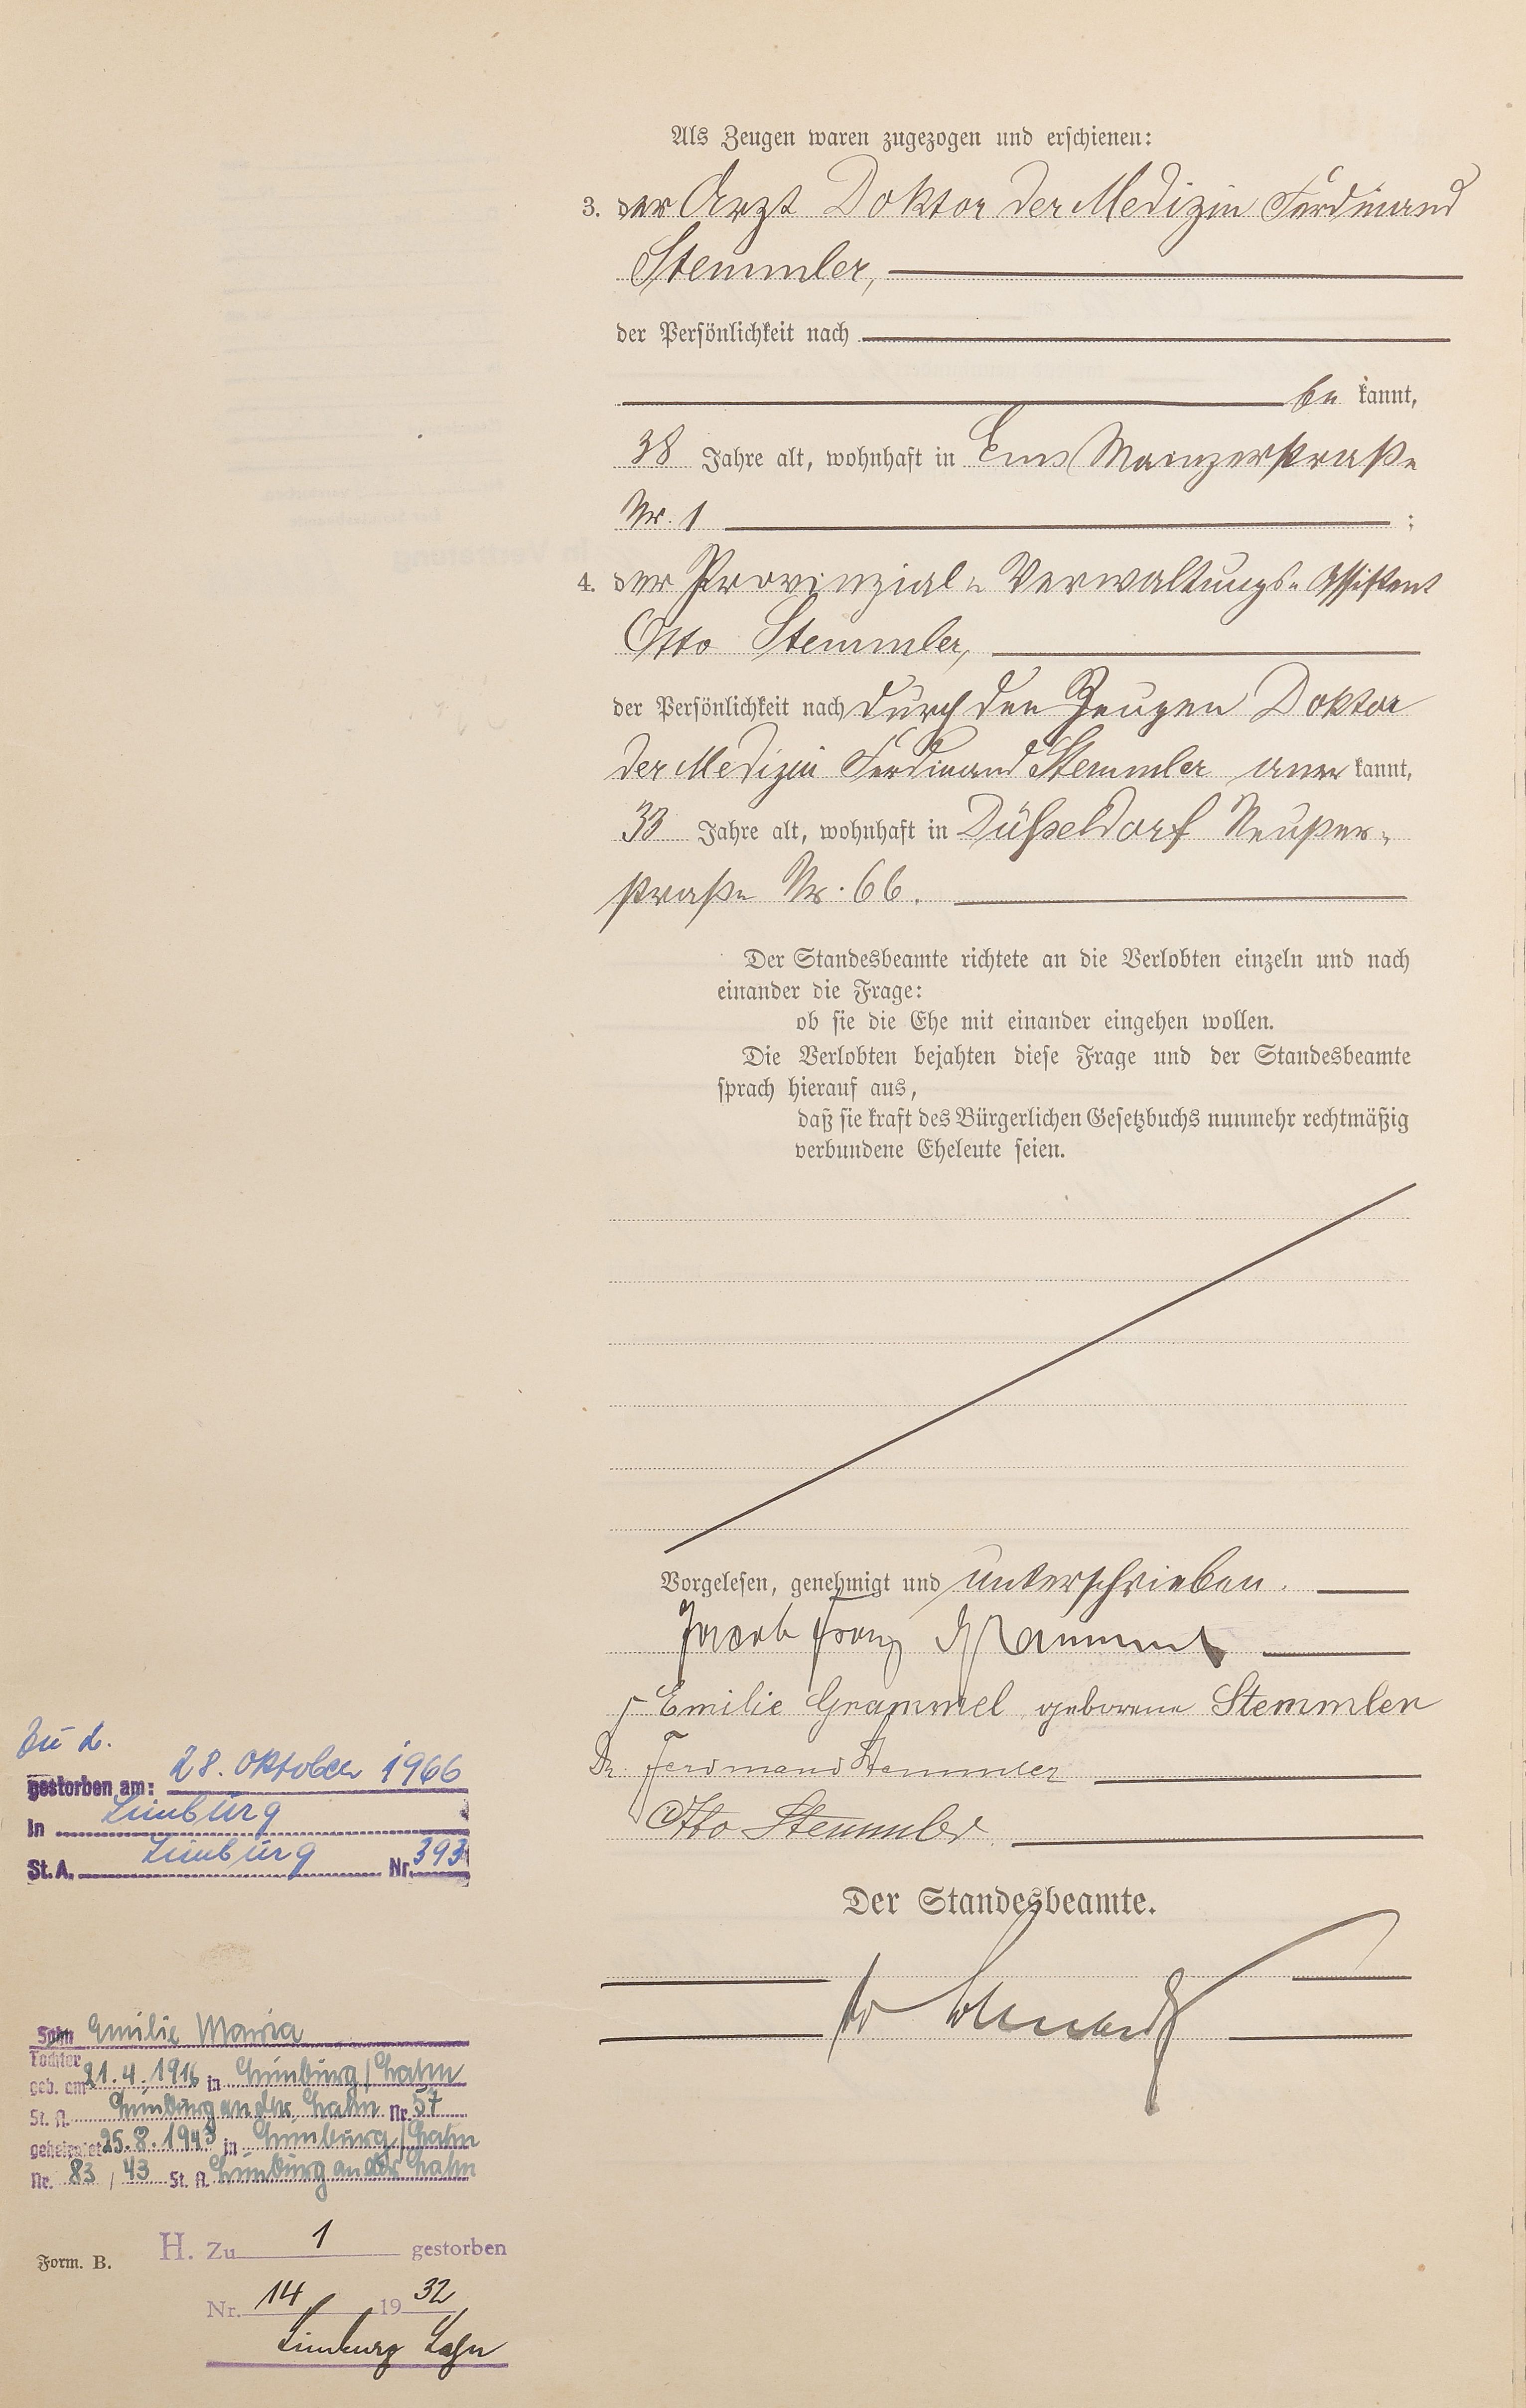 Als Zeugen waren zugezogen und erschienen:
3. der Arzt Doktor der Medizin Ferdinand
Stemmler,
der Persönlichkeit nach
be kannt,
38 Jahre alt, wohnhaft in Ems Mainzerstraße
Nr. 1 ;
4. der Provinzial-Verwaltungs-Assistent
Otto Stemmler,
der Persönlichkeit nach durch den Zeugen Doktor
der Medizin Ferdinand Stemmler aner kannt,
33 Jahre alt, wohnhaft in Düsseldorf Neußer-
straße Nr. 66.
Der Standesbeamte richtete an die Verlobten einzeln und nach
einander die Frage:
ob sie die Ehe mit einander eingehen wollen.
Die Verlobten bejahten diese Frage und der Standesbeamte
sprach hierauf aus,
daß sie kraft des Bürgerlichen Gesetzbuchs nunmehr rechtmäßig
verbundene Eheleute seien.
Vorgelesen, genehmigt und unterschrieben.
Jacob Franz Grammel
Emilie Grammel geborene Stemmler
Dr. Ferdinand Stemmler
Otto Stemmler
Der Standesbeamte.
Zu 2.
gestorben am: 28. Oktober 1966
in Limburg
St. A. Limburg Nr. 393
Sohn Emilie Maria
Tochter
geb. am 21.4.1916 in Limburg/Lahn
St. A. Limburg an der Lahn Nr. 57
geheiratet 25.8.1943 in Limburg/Lahn
Nr. 83 / 43 St. A. Limburg an der Lahn
Form. B.
H. Zu 1 gestorben
Nr. 14 1932
Limburg Lahn